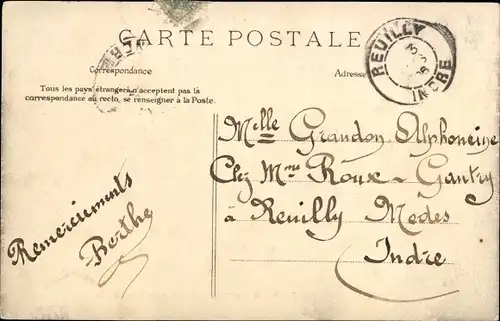 CARTE POSTALE
Correspondance
Adresse
Tous les pays étrangers n'acceptent pas la
correspondance au recto, se renseigner à la Poste.
REUILLY
INDRE
Melle Grandon Alphonsine
Chez Mme Roux-Gautry
à Reuilly
Indre
Remerciements
Berthe